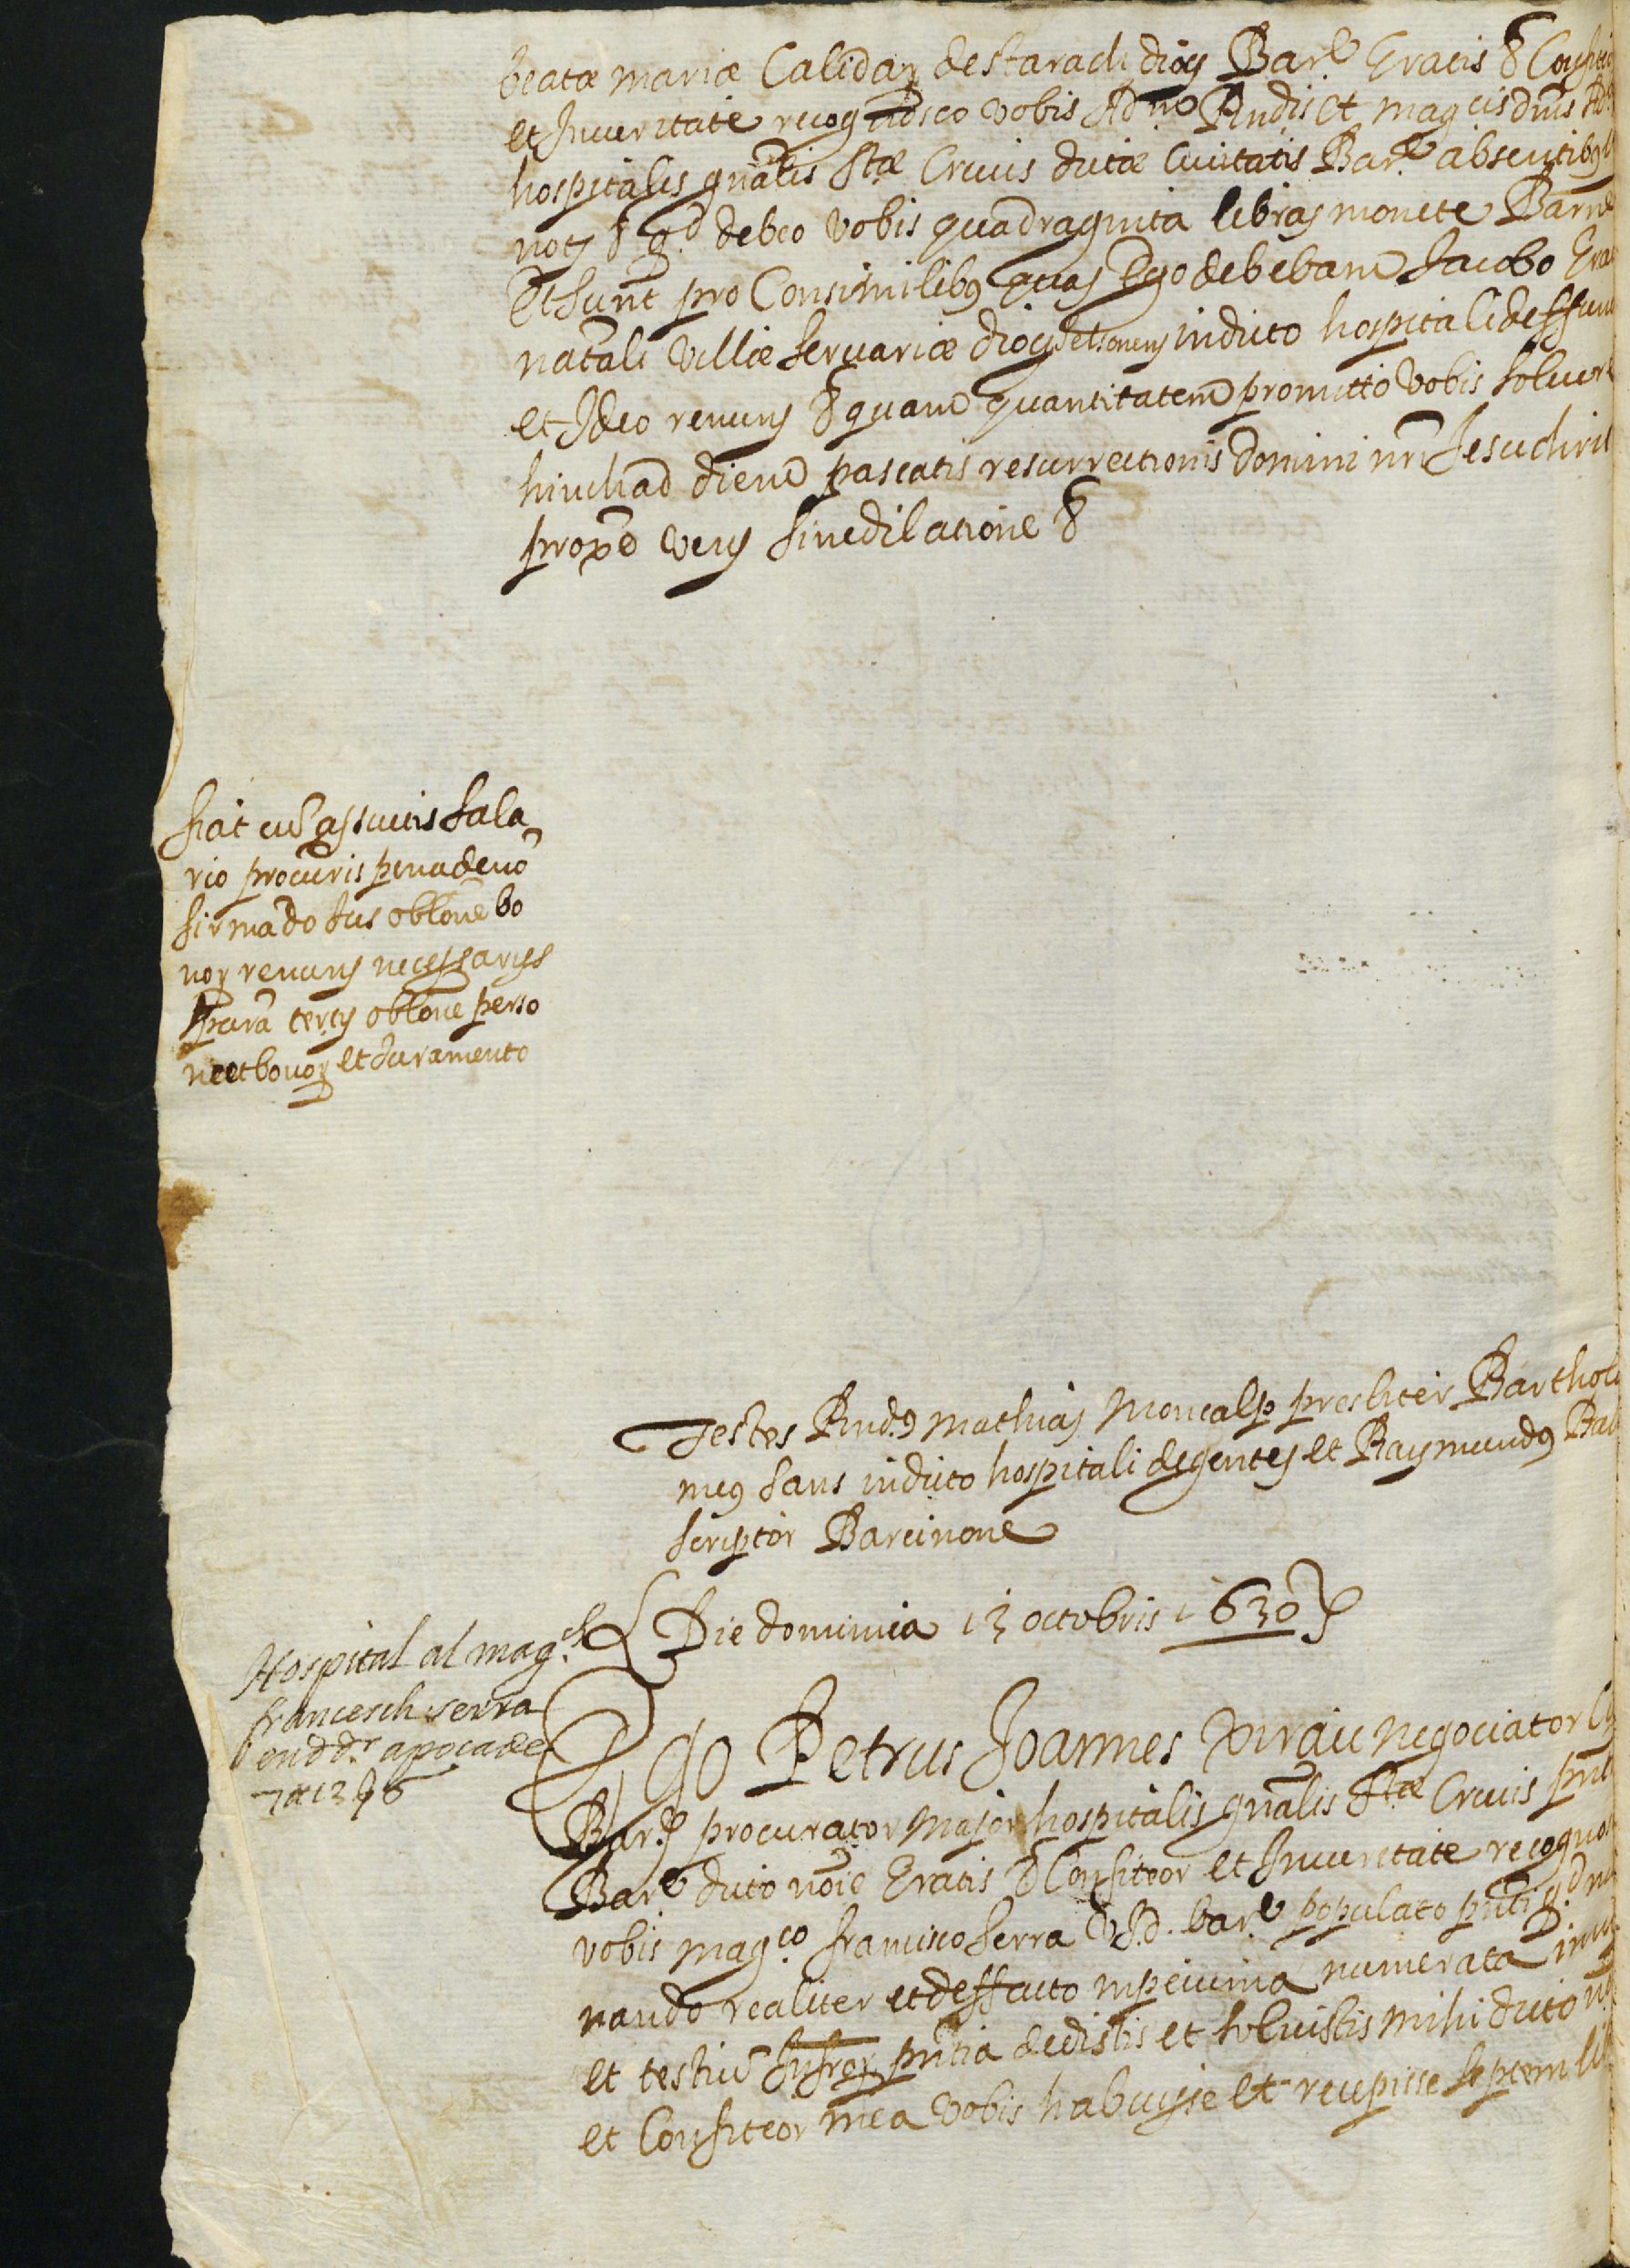 beatæ mariæ Calidaꝝ destarach diocs Barᵉ Gratis & Confiteor
et Inveritate recognosco vobis Adm Rndis et magcis dnis
hospitalis gnalis Stæ Crucis dictæ Civitatis Barᵉ absentibꝰ
notj & qd debeo vobis quadraginta libras monete Barne
Et sunt pro Consimilibꝰ quas Ego debebam Jacobo
natali villæ servariæ diocs Celsonens in dicto hospitali deffun
et Ideo renuns & quam quantitatem promitto vobis solvere
hinch ad diem pascatis resurrectionis domini nri Jesuchrist
proxe vens sine dilatione &
fiat cu assuetis sala
rio procuris pena de no
firmado Jus oblone bo
noꝝ renuns necessarys
para tertj oblone perso
ne et bonoꝝ et Juramento
Testes Rndꝰ Mathias Moncalp presbiter Bartholo
meꝰ Sans in dicto hospitali degentes et Raymundꝰ
scriptor Barcinone
Die dominica 13 octobris 1630
Hospital al magch
francesch serra
en d dr apoca de
7 ₶ 13 s 6
Ego Petrus Joannes Xirau negociator
Barᵉ procurator Major hospitalis gnalis Stæ Crucis
Barᵉ dicto noie Gratis & Confiteor et Inveritate recogno
vobis magco francisco serra V.J.d. barᵉ populato
nando realiter et deffacto in peccunia numerata
et testiu Infroꝝ pntia dedistis et solvistis mihi dicto
et Confiteor me a vobis habuisse et recepisse septem